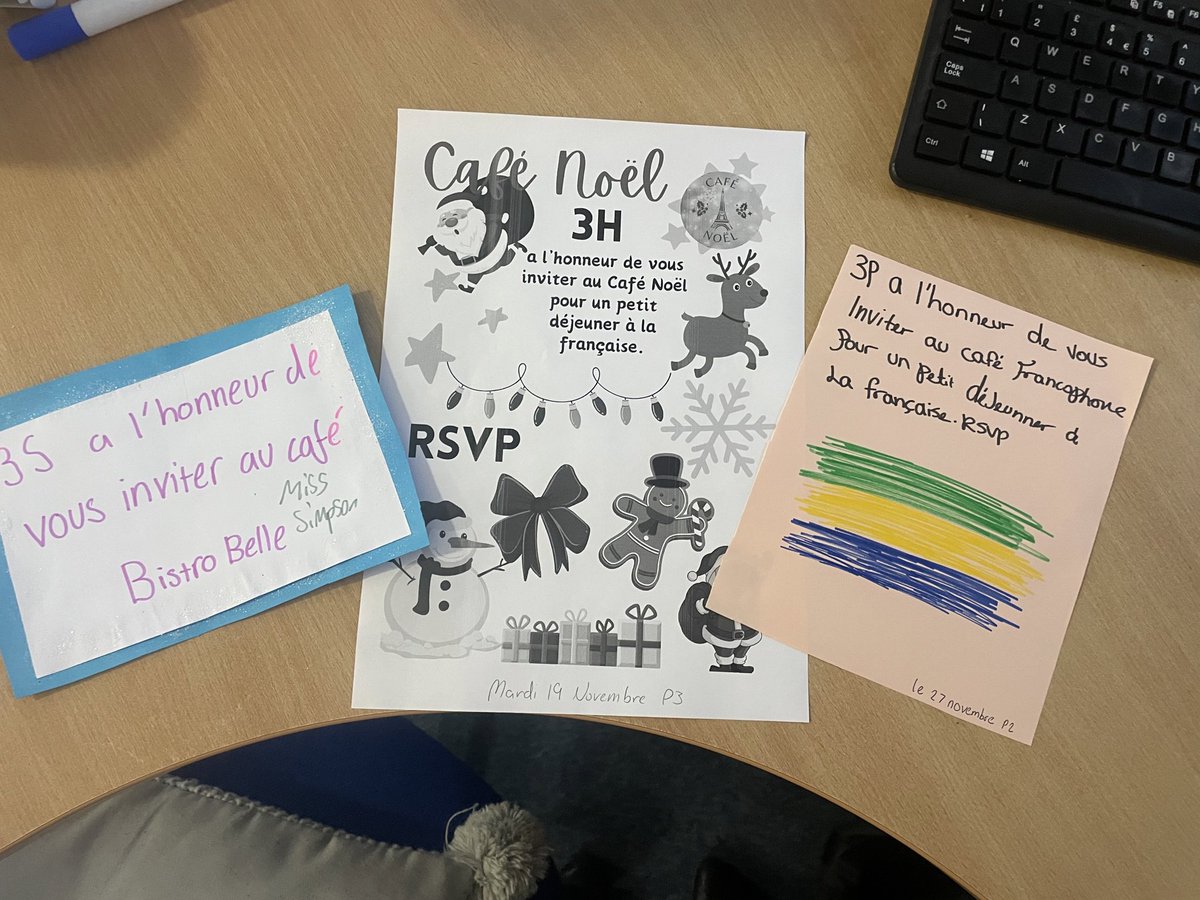 3S a l'honneur de
vous inviter au café
Bistro Belle
Miss
Simpson
Café Noël
CAFÉ
NOËL
3H
a l'honneur de vous
inviter au Café Noël
pour un petit
déjeuner à la
française.
RSVP
Mardi 19 Novembre P3
3P a l'honneur de vous
Inviter au café Francophone
Pour un Petit déJeunner à
la française. RSVP
le 27 novembre P2
Caps
Lock
Ctrl
Alt
Q W E R T Y
A S D F G H
Z X C V B